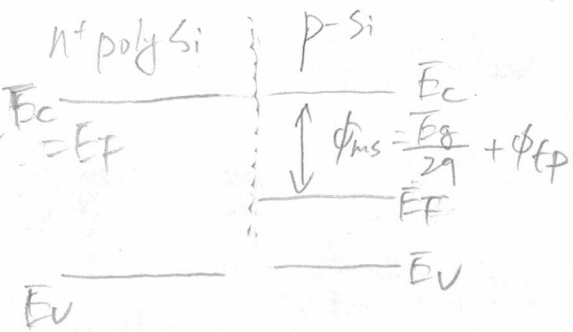 n⁺ poly Si
p-Si
Ec
=EF
Ec
ϕms = Eg/2q + ϕfp
EF
Ev
Ev